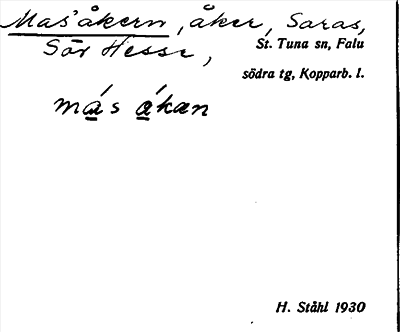 Mas'åkern, åker, Saras,
Sör Hesse,
St. Tuna sn, Falu
södra tg, Kopparb. l.
más ákan
H. Ståhl 1930